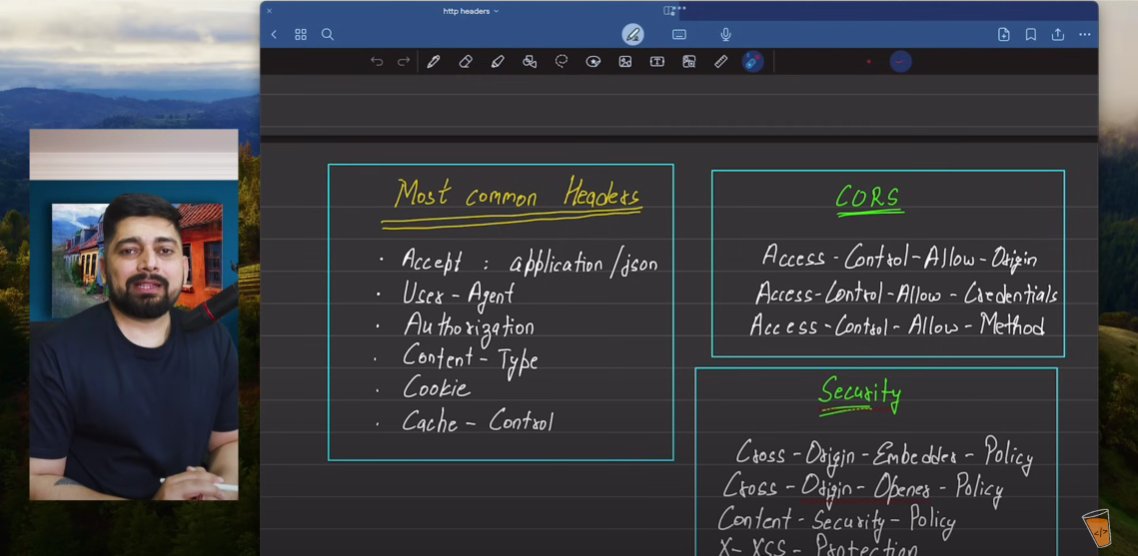 http headers
Most common Headers
· Accept : application/json
· User-Agent
· Authorization
· Content-Type
· Cookie
· Cache-Control
CORS
Access-Control-Allow-Origin
Access-Control-Allow-Credentials
Access-Control-Allow-Method
Security
Cross-Origin-Embedder-Policy
Cross-Origin-Opener-Policy
Content-Security-Policy
X-XSS-Protection